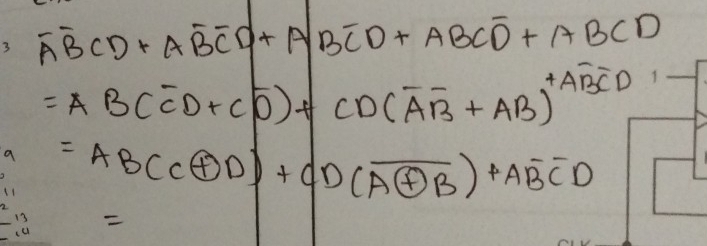 3 A̅B̅CD + AB̅C̅D + ABC̅D + ABCD̅ + ABCD
= AB(C̅D + CD̅) + CD(A̅B̅ + AB) + AB̅C̅D 1
= AB(C⊕D) + CD(A̅⊕̅B̅) + AB̅C̅D
=
9
11
2
13
14
CLK